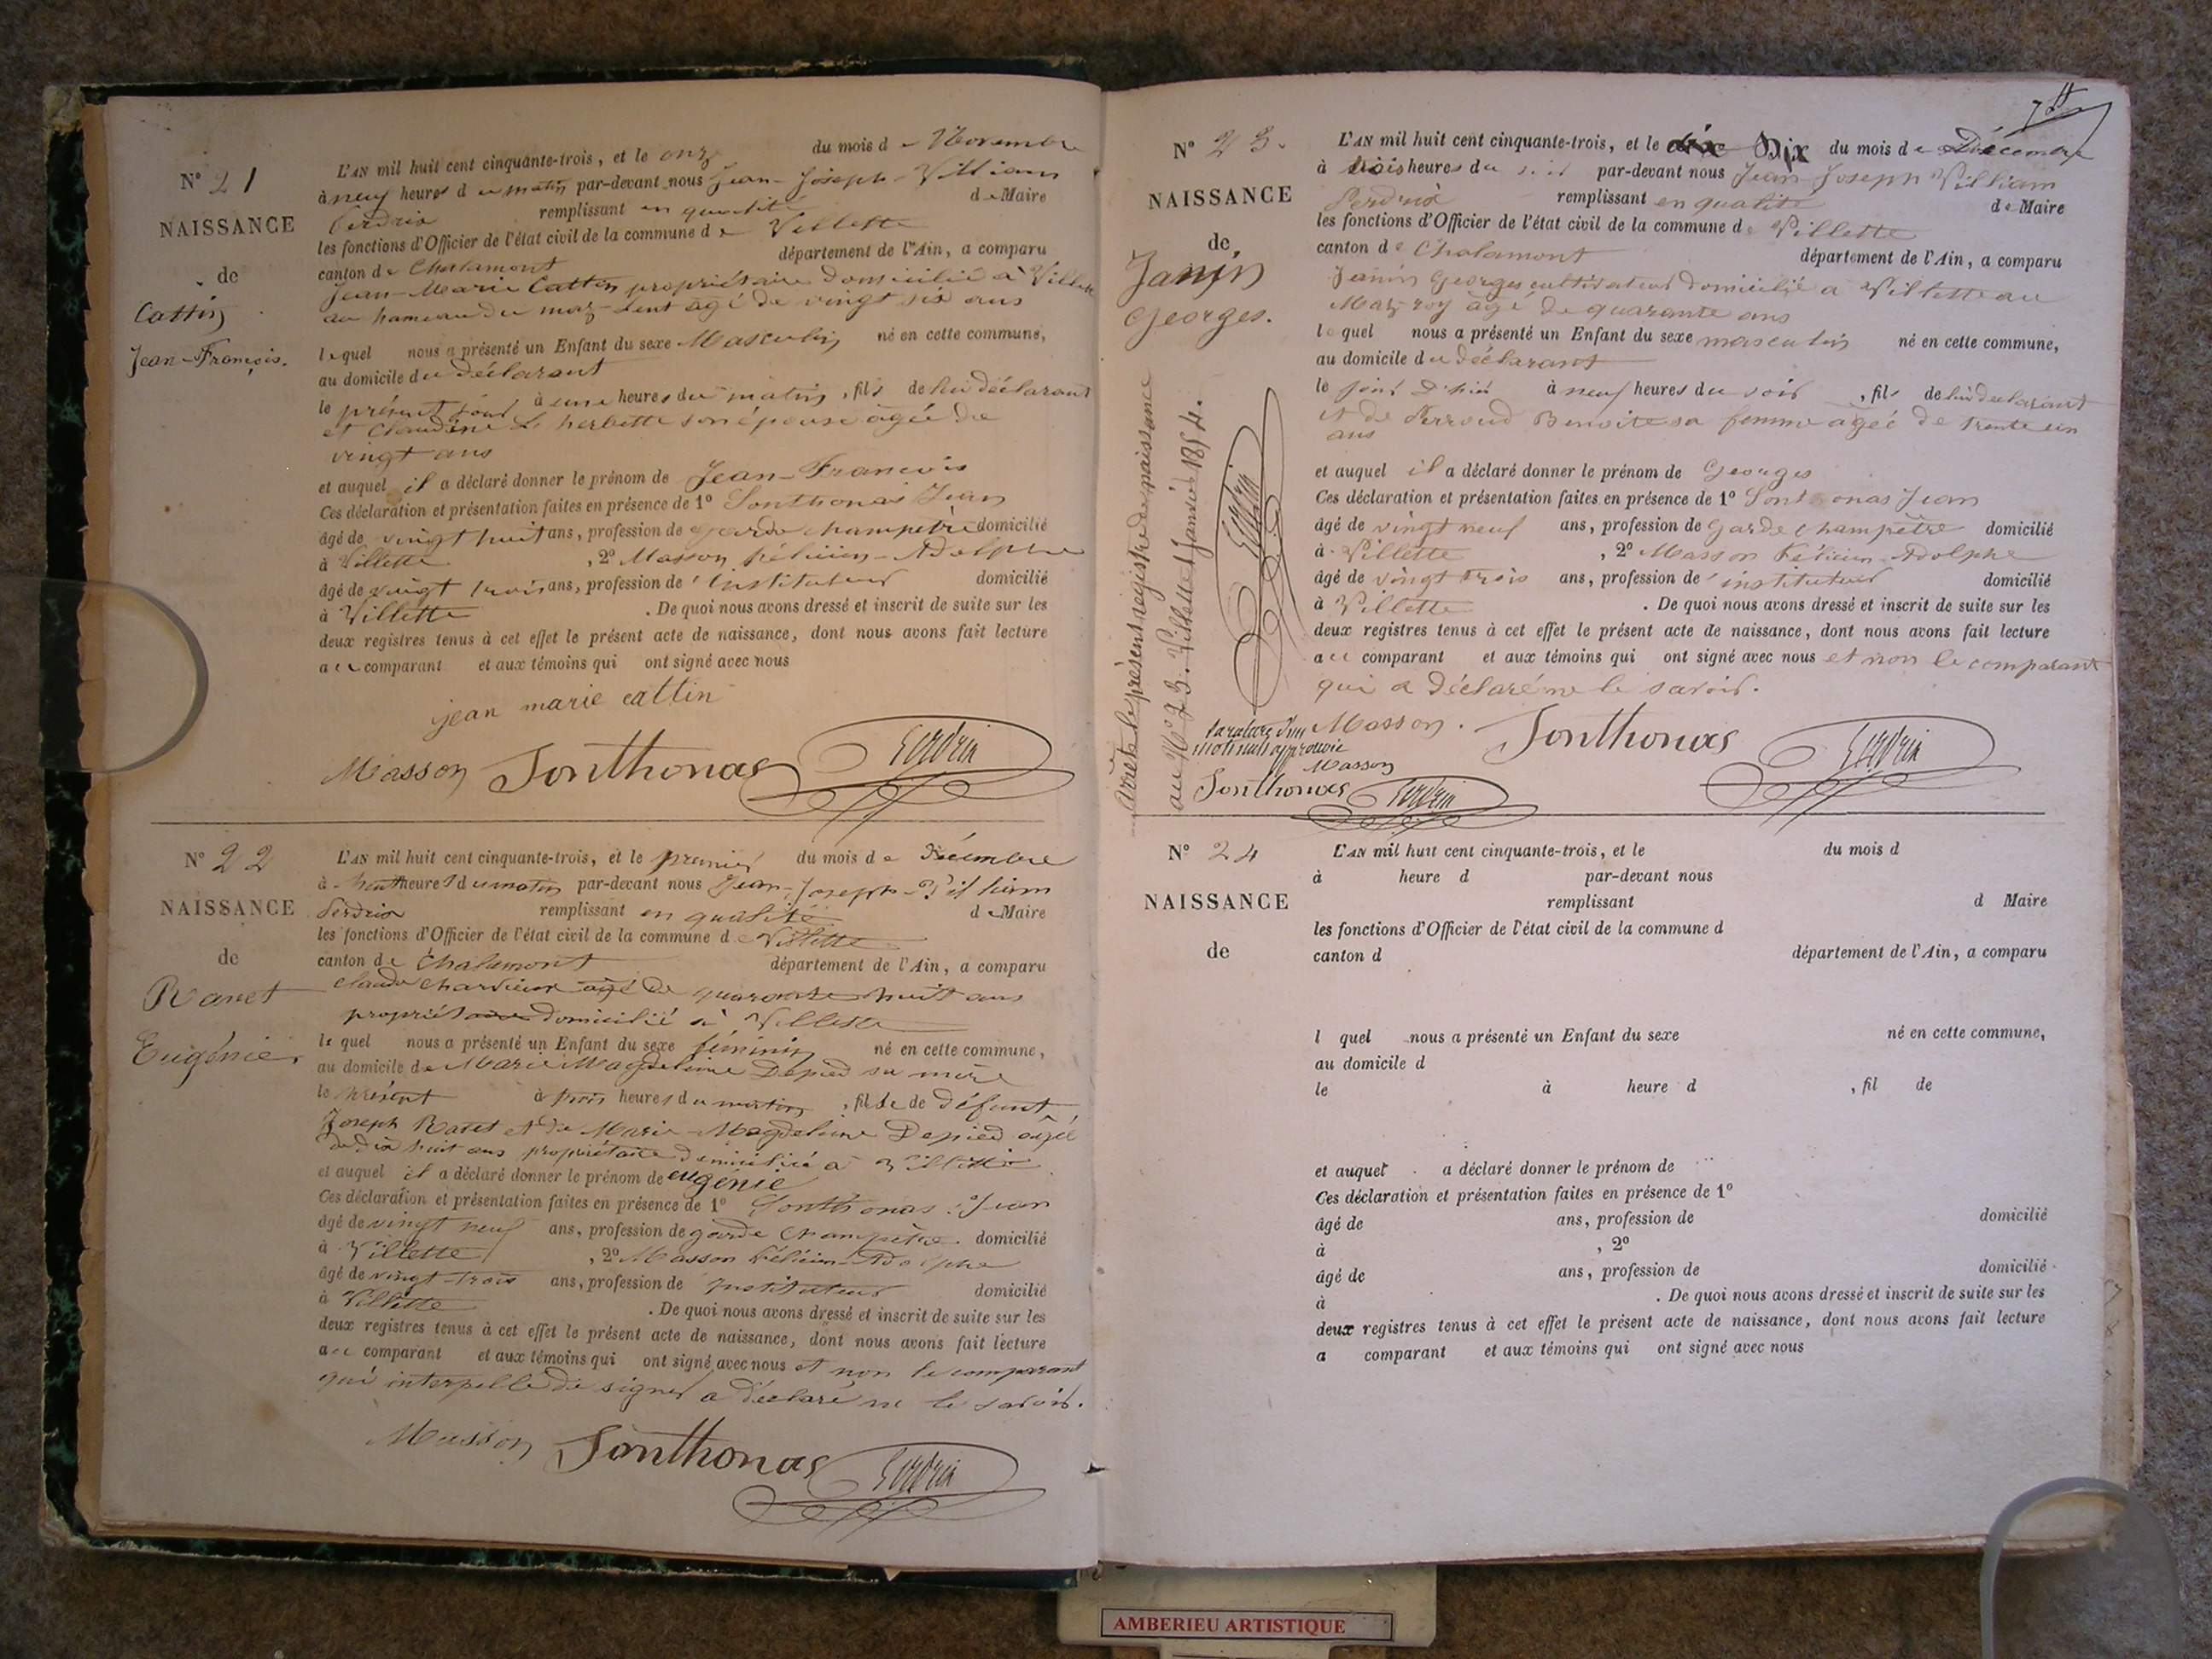 N° 21
NAISSANCE
de
Cattin
Jean-François.
L'AN mil huit cent cinquante-trois, et le onze du mois de Novembre
à neuf heures du matin par-devant nous Jean-Joseph-Villiam
Perdrix remplissant en qualité de Maire
les fonctions d'Officier de l'état civil de la commune de Villette
canton de Chalamont département de l'Ain, a comparu
Jean-Marie Cattin propriétaire domicilié à Villette
au hameau du agé de vingt six ans
lequel nous a présenté un Enfant du sexe Masculin né en cette commune,
au domicile du déclarant
le présent jour à une heures du matin, fils de lui déclarant
et Claudine L'herbette son épouse agée de
vingt ans
et auquel il a déclaré donner le prénom de Jean-François
Ces déclaration et présentation faites en présence de 1° Sonthonas Jean
âgé de vingt huit ans, profession de garde champêtre domicilié
à Villette, 2° Masson Félicien-Adolphe
âgé de vingt trois ans, profession de Instituteur domicilié
à Villette. De quoi nous avons dressé et inscrit de suite sur les
deux registres tenus à cet effet le présent acte de naissance, dont nous avons fait lecture
au comparant et aux témoins qui ont signé avec nous
jean marie cattin
Masson Sonthonas Perdrix
N° 22
NAISSANCE
de
Ravet
Eugénie
L'AN mil huit cent cinquante-trois, et le premier du mois de Décembre
à huit heures du matin par-devant nous Jean-Joseph-Villiam
Perdrix remplissant en qualité de Maire
les fonctions d'Officier de l'état civil de la commune de Villette
canton de Chalamont département de l'Ain, a comparu
Claude agé de quarante huit ans
propriétaire domicilié à Villette
lequel nous a présenté un Enfant du sexe féminin né en cette commune,
au domicile de Marie Magdeleine Depied sa mère
le présent à trois heures du matin, fille de défunt
Joseph Ravet et de Marie-Magdeleine Depied agée
de dix huit ans propriétaire domiciliée à Villette
et auquel il a déclaré donner le prénom de eugenie
Ces déclaration et présentation faites en présence de 1° Sonthonas Jean
âgé de vingt neuf ans, profession de garde champêtre. domicilié
à Villette, 2° Masson Félicien-Adolphe
âgé de vingt-trois ans, profession de Instituteur domicilié
à Villette. De quoi nous avons dressé et inscrit de suite sur les
deux registres tenus à cet effet le présent acte de naissance, dont nous avons fait lecture
au comparant et aux témoins qui ont signé avec nous et non le comparant
qui interpellé de signer a déclaré ne le savoir.
Masson Sonthonas Perdrix
N° 23.
NAISSANCE
de
Janin
Georges.
L'AN mil huit cent cinquante-trois, et le dix Dix du mois de Décembre
à trois heures du soir par-devant nous Jean-Joseph Villiam
Perdrix remplissant en qualité de Maire
les fonctions d'Officier de l'état civil de la commune de Villette
canton de Chalamont département de l'Ain, a comparu
Janin Georges cultivateur domicilié à Villette au
Maz-roy agé de quarante ans
lequel nous a présenté un Enfant du sexe masculin né en cette commune,
au domicile du déclarant
le jour d'hier à neuf heures du soir, fils de lui déclarant
et de Perroud Benoite sa femme agée de trente un
ans
et auquel il a déclaré donner le prénom de Georges
Ces déclaration et présentation faites en présence de 1° Sonthonas Jean
âgé de vingt neuf ans, profession de Garde champêtre domicilié
à Villette, 2° Masson Félicien-Adolphe
âgé de vingt trois ans, profession de instituteur domicilié
à Villette. De quoi nous avons dressé et inscrit de suite sur les
deux registres tenus à cet effet le présent acte de naissance, dont nous avons fait lecture
au comparant et aux témoins qui ont signé avec nous et non le comparant
qui a déclaré ne le savoir.
Masson. Sonthonas Perdrix
la rature d'un
mot nul approuvée
Masson
Sonthonas Perdrix
arrêté le présent registre de naissance
au N° 23. Villette 1 Janvier 1854.
Perdrix
N° 24
NAISSANCE
de
L'AN mil huit cent cinquante-trois, et le du mois d
à heure d par-devant nous
remplissant d Maire
les fonctions d'Officier de l'état civil de la commune d
canton d département de l'Ain, a comparu
l quel nous a présenté un Enfant du sexe né en cette commune,
au domicile d
le à heure d , fil de
et auquel a déclaré donner le prénom de
Ces déclaration et présentation faites en présence de 1°
âgé de ans, profession de domicilié
à , 2°
âgé de ans, profession de domicilié
à . De quoi nous avons dressé et inscrit de suite sur les
deux registres tenus à cet effet le présent acte de naissance, dont nous avons fait lecture
a comparant et aux témoins qui ont signé avec nous
AMBERIEU ARTISTIQUE